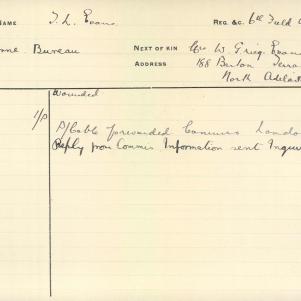 NAME T. L. Evans REG. &c. 6th Field
Bureau NEXT OF KIN W. Evans
ADDRESS 188 Barton Terra
North Adelaid
wounded
forwarded London
Reply from Commrs Information sent Inquir